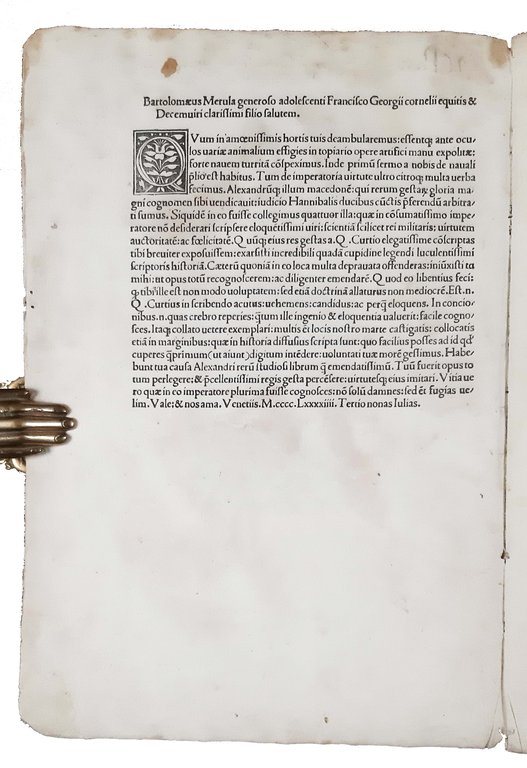 Bartolomæus Merula generoso adolescenti Francisco Georgii cornelii equitis &
Decemuiri clarissimi filio salutem.
QVum in amœnissimis hortis tuis deambularemus: essentq; ante ocu-
los uariæ animalium effigies in topiario opere artifici manu expolitæ:
forte nauem turritã cõspeximus. Inde primũ sermo a nobis de nauali
p̃lio est habitus. Tum de imperatoria uirtute ultro citroq; multa uerba
fecimus. Alexandrũq; illum macedonẽ: qui rerum gestaꝝ gloria ma-
gni cognomen sibi uendicauit: iudicio Hannibalis ducibus cũctis p̃ferendũ arbitra-
ti sumus. Siquidẽ in eo fuisse collegimus quattuor illa: quæ in cõsumatissimo impe-
ratore nõ desiderari scripsere eloquẽtissimi uiri: scientiã scilicet rei militaris: uirtutem
auctoritatẽ: ac fœlicitatẽ. Q uũq; eius res gestas a .Q . Curtio elegantissime cõscriptas
tibi breuiter exposuissem: exarsisti incredibili quadã cupidine legendi luculentissimi
scriptoris historiã. Cæterũ quoniã in eo loca multa deprauata offenderas: iniũxisti ta
mihi: ut opus totũ recognoscerem: ac diligenter emendarẽ. Q uod eo libentius feci:
q; tibi ille est non modo uoluptatem: sed euã doctrinã allaturus non mediocrẽ. Est .n.
Q . Curtius in scribendo acutus: uehemens: candidus: ac perq̃ eloquens. In concio-
nibus .n. quas crebro reperies: quum ille ingenio & eloquentia ualuerit: facile cognos-
ces. Itaq; collato uetere exemplari: multis ẽt locis nostro marte castigatis: collocatis
etiã in marginibus: quæ in historia diffusius scripta sunt: quo facilius posses ad id qd'
cuperes q̃primum (ut aiunt) digitum intẽdere: uoluntati tuæ morẽ gessimus. Habe-
bunt tua causa Alexandri rerũ studiosi librum q̃ emendatissimũ. Tuũ fuerit opus to
tum perlegere: & p̃cellentissimi regis gesta percẽsere: uirtutesq; eius imitari. Vitia ue-
ro quæ in eo imperatore plurima fuisse cognosces: nõ solũ damnes: sed ẽt fugias ue-
lim. Vale: & nos ama. Venetiis. M. cccc. Lxxxxiiii. Tertio nonas Iulias.